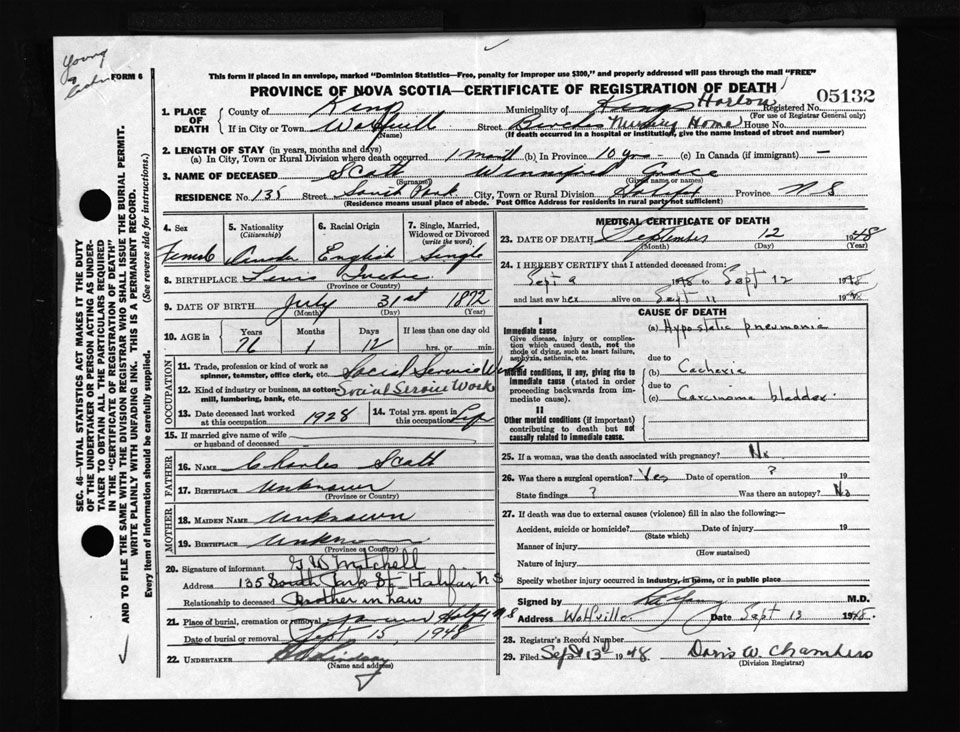 Young
FORM 6
This form if placed in an envelope, marked "Dominion Statistics—Free, penalty for improper use $300," and properly addressed will pass through the mail "FREE"
PROVINCE OF NOVA SCOTIA—CERTIFICATE OF REGISTRATION OF DEATH
05132
1. PLACE OF DEATH
County of Kings
Municipality of Kings
Registered No.
(For use of Registrar General only)
If in City or Town Wolfville
(Name)
Street Nursing Home House No.
(If death occurred in a hospital or institution, give the name instead of street and number)
2. LENGTH OF STAY (in years, months and days)
(a) In City, Town or Rural Division where death occurred 1 month (b) In Province 10 yrs (c) In Canada (if immigrant) —
3. NAME OF DECEASED Scott Winnifred Grace
(Surname) (Given name or names)
RESIDENCE No. 135 Street South Park City, Town or Rural Division Halifax Province N S
(Residence means usual place of abode. Post Office Address for residents in rural parts not sufficient)
4. Sex
Female
5. Nationality
(Citizenship)
Canada
6. Racial Origin
English
7. Single, Married, Widowed or Divorced
(write the word)
Single
8. BIRTHPLACE Levis Quebec
(Province or Country)
9. DATE OF BIRTH July 31st 1872
(Month) (Day) (Year)
10. AGE in Years Months Days If less than one day old
76 1 12 hrs. or min.
OCCUPATION
11. Trade, profession or kind of work as spinner, teamster, office clerk, etc. Social Service Work
12. Kind of industry or business, as cotton-mill, lumbering, bank, etc. Social Service Work
13. Date deceased last worked at this occupation 1928
14. Total yrs. spent in this occupation Life
15. If married give name of wife or husband of deceased
FATHER
16. NAME Charles Scott
17. BIRTHPLACE Unknown
(Province or Country)
MOTHER
18. MAIDEN NAME Unknown
19. BIRTHPLACE Unknown
(Province or Country)
20. Signature of informant G W Mitchell
Address 135 South Park St Halifax N S
Relationship to deceased Brother in law
21. Place of burial, cremation or removal N S
Date of burial or removal Sept 15, 1948
22. UNDERTAKER Lindsay
(Name and address)
MEDICAL CERTIFICATE OF DEATH
23. DATE OF DEATH September 12 1948
(Month) (Day) (Year)
24. I HEREBY CERTIFY that I attended deceased from:
Sept 9 1948 to Sept 12 1948
and last saw her alive on Sept 11 1948
CAUSE OF DEATH
I
Immediate cause
Give disease, injury or complication which caused death, not the mode of dying, such as heart failure, asphyxia, asthenia, etc.
(a) Hypostatic pneumonia
due to
Morbid conditions, if any, giving rise to immediate cause (stated in order proceeding backwards from immediate cause).
(b) Cachexia
due to
(c) Carcinoma bladder.
II
Other morbid conditions (if important) contributing to death but not causally related to immediate cause.
25. If a woman, was the death associated with pregnancy? No
26. Was there a surgical operation? Yes Date of operation? ? 19
State findings ? Was there an autopsy? No
27. If death was due to external causes (violence) fill in also the following:—
Accident, suicide or homicide? Date of injury 19
(State which)
Manner of injury
(How sustained)
Nature of injury
Specify whether injury occurred in industry, in home, or in public place
Signed by M.D.
Address Wolfville Date Sept 13 1948.
28. Registrar's Record Number
29. Filed Sept 13th 1948 Doris W. Chambers
(Division Registrar)
SEC. 46—VITAL STATISTICS ACT MAKES IT THE DUTY
OF THE UNDERTAKER OR PERSON ACTING AS UNDER-
TAKER TO OBTAIN ALL THE PARTICULARS REQUIRED
IN THE "CERTIFICATE OF REGISTRATION OF DEATH"
AND TO FILE THE SAME WITH THE DIVISION REGISTRAR WHO SHALL ISSUE THE BURIAL PERMIT.
WRITE PLAINLY WITH UNFADING INK. THIS IS A PERMANENT RECORD.
Every item of information should be carefully supplied. (See reverse side for instructions.)